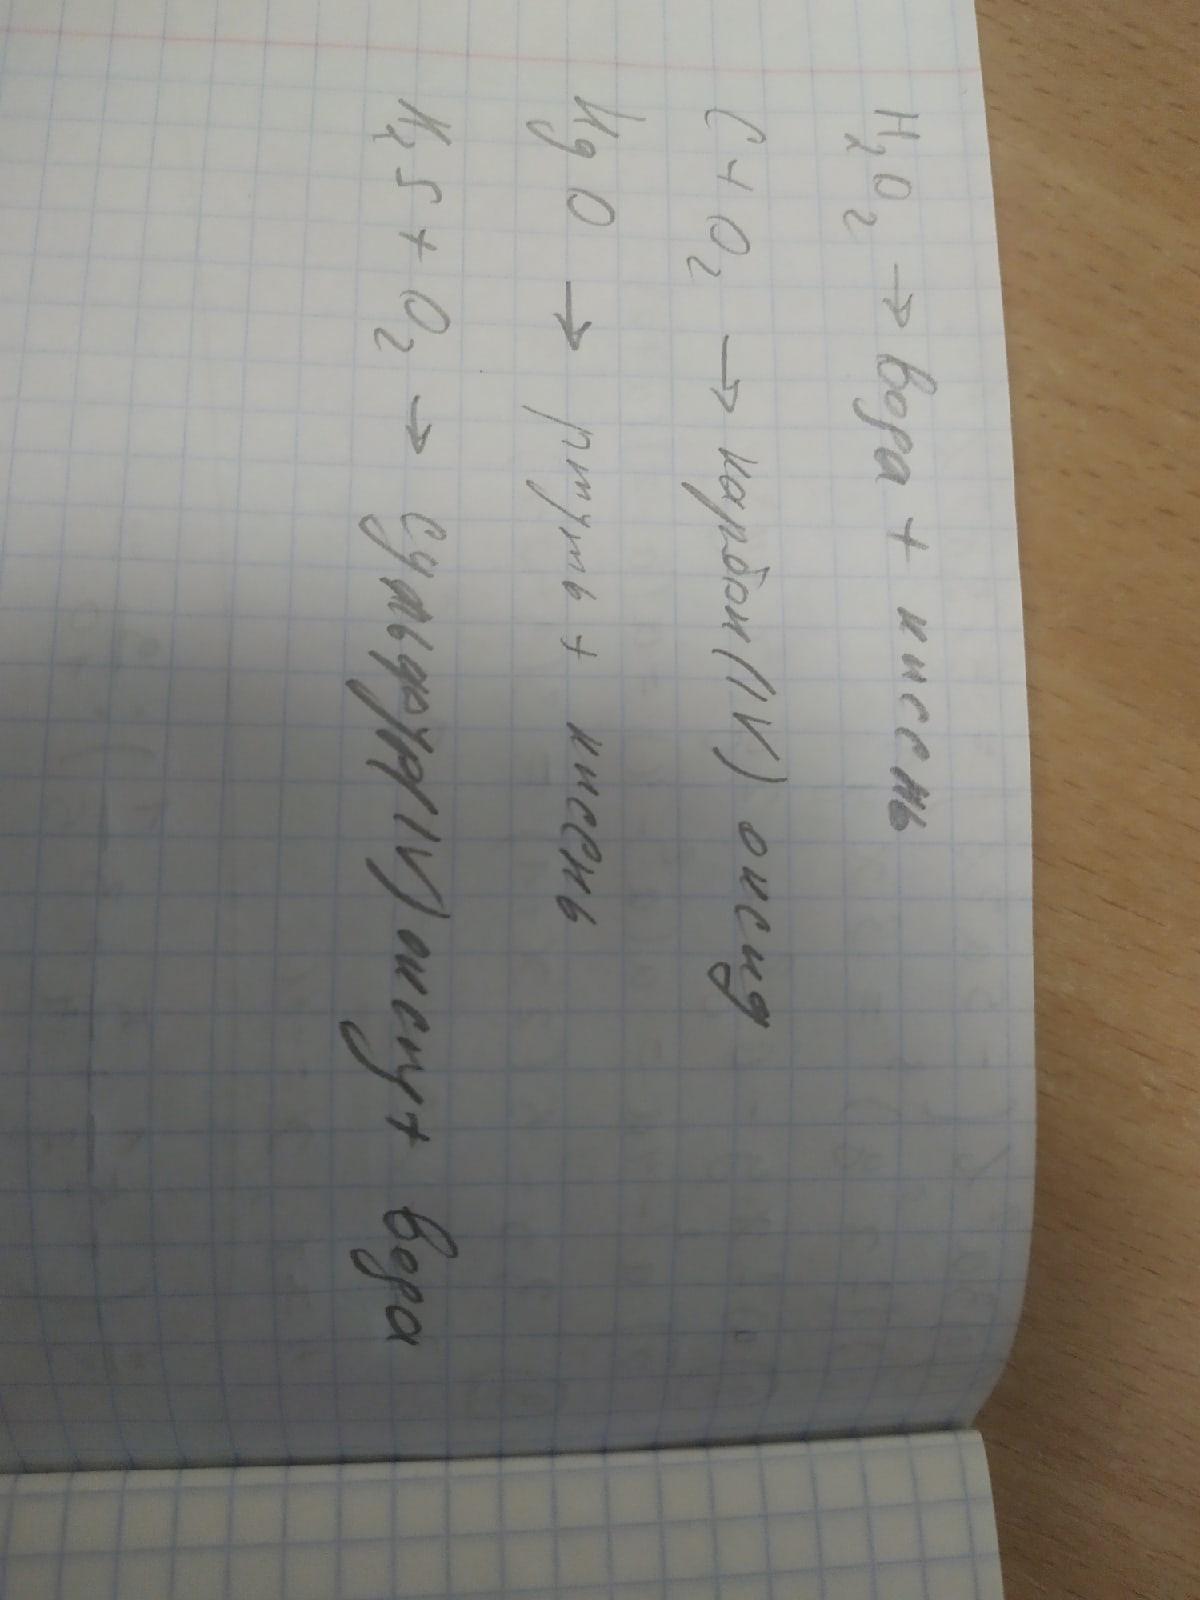 H₂O₂ → вода + кисень
C + O₂ → карбон(IV) оксид
HgO → ртуть + кисень
H₂S + O₂ → сульфур(IV) оксиду + вода